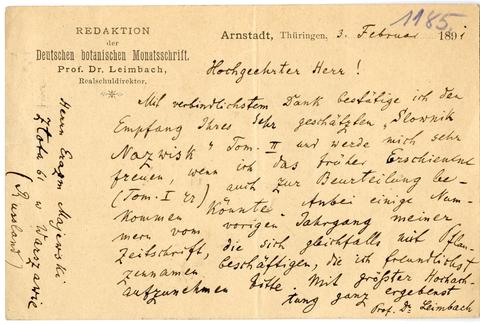 1185.
REDAKTION
der
Deutschen botanischen Monatsschrift.
Prof. Dr. Leimbach,
Realschuldirektor.
Arnstadt, Thüringen, 3. Februar 1891
Hochgeehrter Herr!
Mit verbindlichstem Dank bestätige ich den
Empfang Ihres sehr geschätzten „Słownik
Nazwisk“ Tom. II und werde mich sehr
freuen, wenn ich das früher Erschienene
(Tom. I) auch zur Beurteilung be-
kommen könnte. Anbei einige Num-
mern vom vorigen Jahrgang meiner
Zeitschrift, die sich gleichfalls mit Pflan-
zennamen beschäftigen, die ich freundlichst
aufzunehmen bitte. Mit größter Hochach-
tung ganz ergebenst
Prof. Dr Leimbach
Herrn Erazm Majewski
Złota 61 w Warszawie
(Russland)